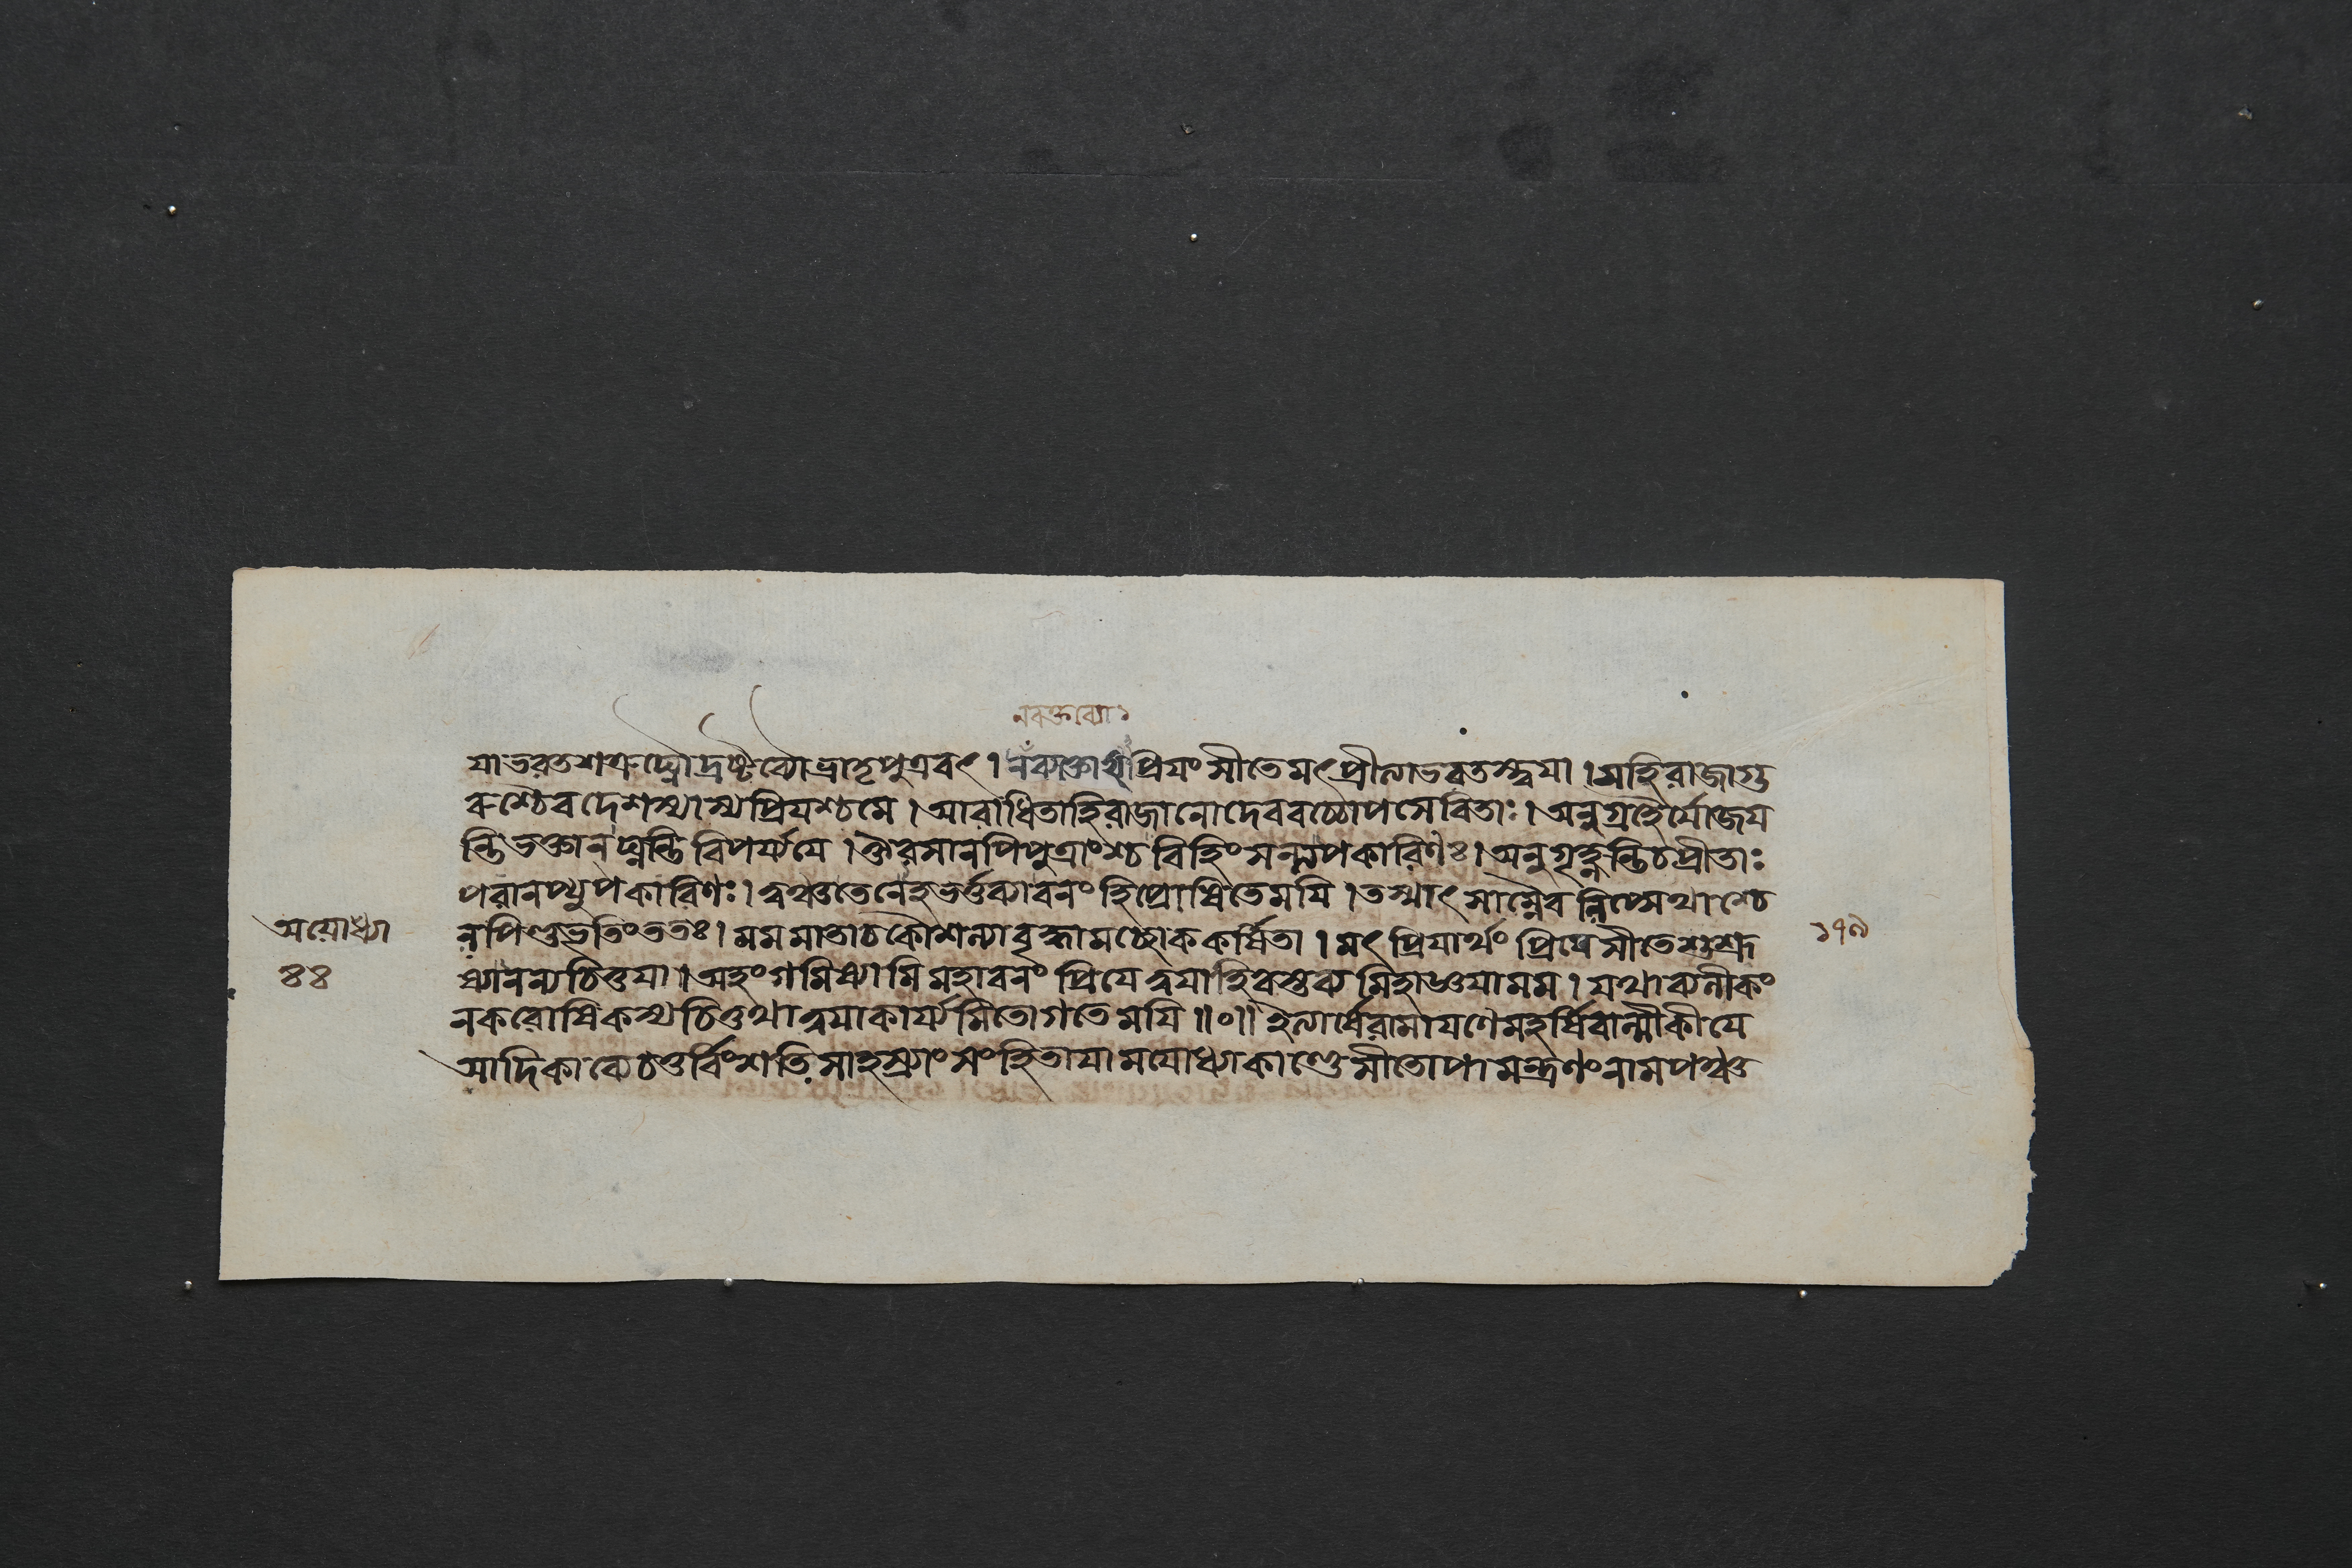 নবক্তব্যো১
যাভরতশত্রুঘ্নৌদ্রষ্টব্যৌভ্রাতৃপুত্রবৎ। প্রিযং সীতেমৎপ্রীত্যাভরতস্ত্বযা। সহিরাজাগু
রুশ্চৈবদেশস্যাস্যপ্রিযশ্চমে। আরাধিতাহিরাজানোদেববচ্চোপসেবিতাঃ। অনুগ্রহৈর্যোজয
ন্তিভক্তানঘ্নন্তিবিপর্য্যযে। ঔরসানপিপুত্রাংশ্চবিহিংসন্ত্যপকারিণঃ। অনুগৃহ্নন্তিচপ্রীতাঃ
পরানপ্যুপকারিণঃ। ত্বঞ্চতেনেহভর্ত্তব্যাবনংহিপ্রোষিতেমযি। তস্মাৎসাম্নৈবলিপ্সেথাশ্চে
অযোধ্যা
লপিণ্ডভৃতিংততঃ। মমমাতাচকৌশল্যাবৃদ্ধামচ্ছোককর্ষিতা। মৎপ্রিযার্থং প্রিযেসীতেশুশ্রূ
১৭৯
৪৪
ষ্যানন্যচিত্তযা। অহংগমিষ্যামিমহাবনং প্রিযে ত্বযাহিবস্তব্যমিহাজ্ঞযামম। যথাব্যলীকং
নকরোষিকস্যচিত্তথাত্বযাকার্য্যমিতোগতেমযি॥০॥ ইত্যার্ষেরামাযণেমহর্ষিবাল্মীকীযে
আদিকাব্যেচতুর্বিংশতিসাহস্র্যাং সংহিতাযামযোধ্যাকাণ্ডেসীতোপামন্ত্রণংনামপঞ্চত